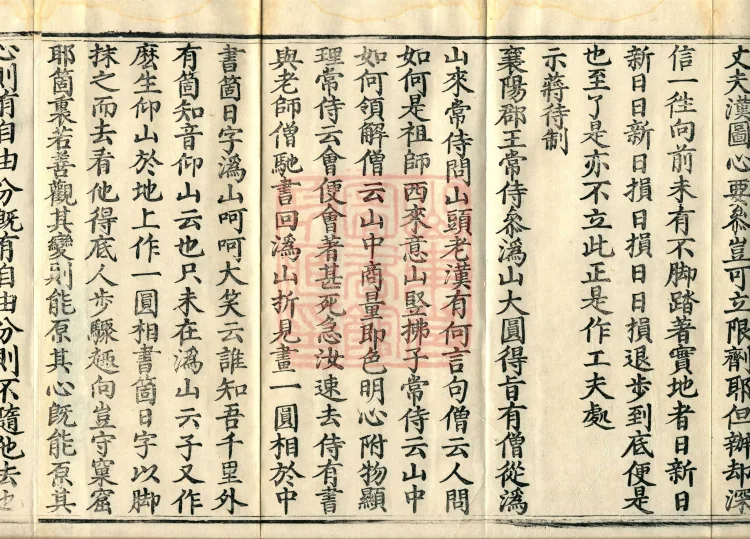 丈夫漢圖心要參豈可立限劑耶但辦却深
信一徃向前未有不脚踏著實地者日新日
新日日新日損日損日日損退步到底便是
也至了是亦不立此正是作工夫處
示蔣待制
襄陽郡王常侍參溈山大圓得旨有僧從溈
山來常侍問山頭老漢有何言句僧云人問
如何是祖師西來意山竪拂子常侍云山中
如何領解僧云山中商量即色明心附物顯
理常侍云會便會著甚死急汝速去侍有書
與老師僧馳書回溈山折見畫一圓相於中
書箇日字溈山呵呵大笑云誰知吾千里外
有箇知音仰山云也只未在溈山云子又作
麽生仰山於地上作一圓相書箇日字以脚
抹之而去看他得底人步驟趣向豈守窠窟
耶箇裏若善觀其變則能原其心旣能原其
心則有自由分旣有自由分則不隨他去也